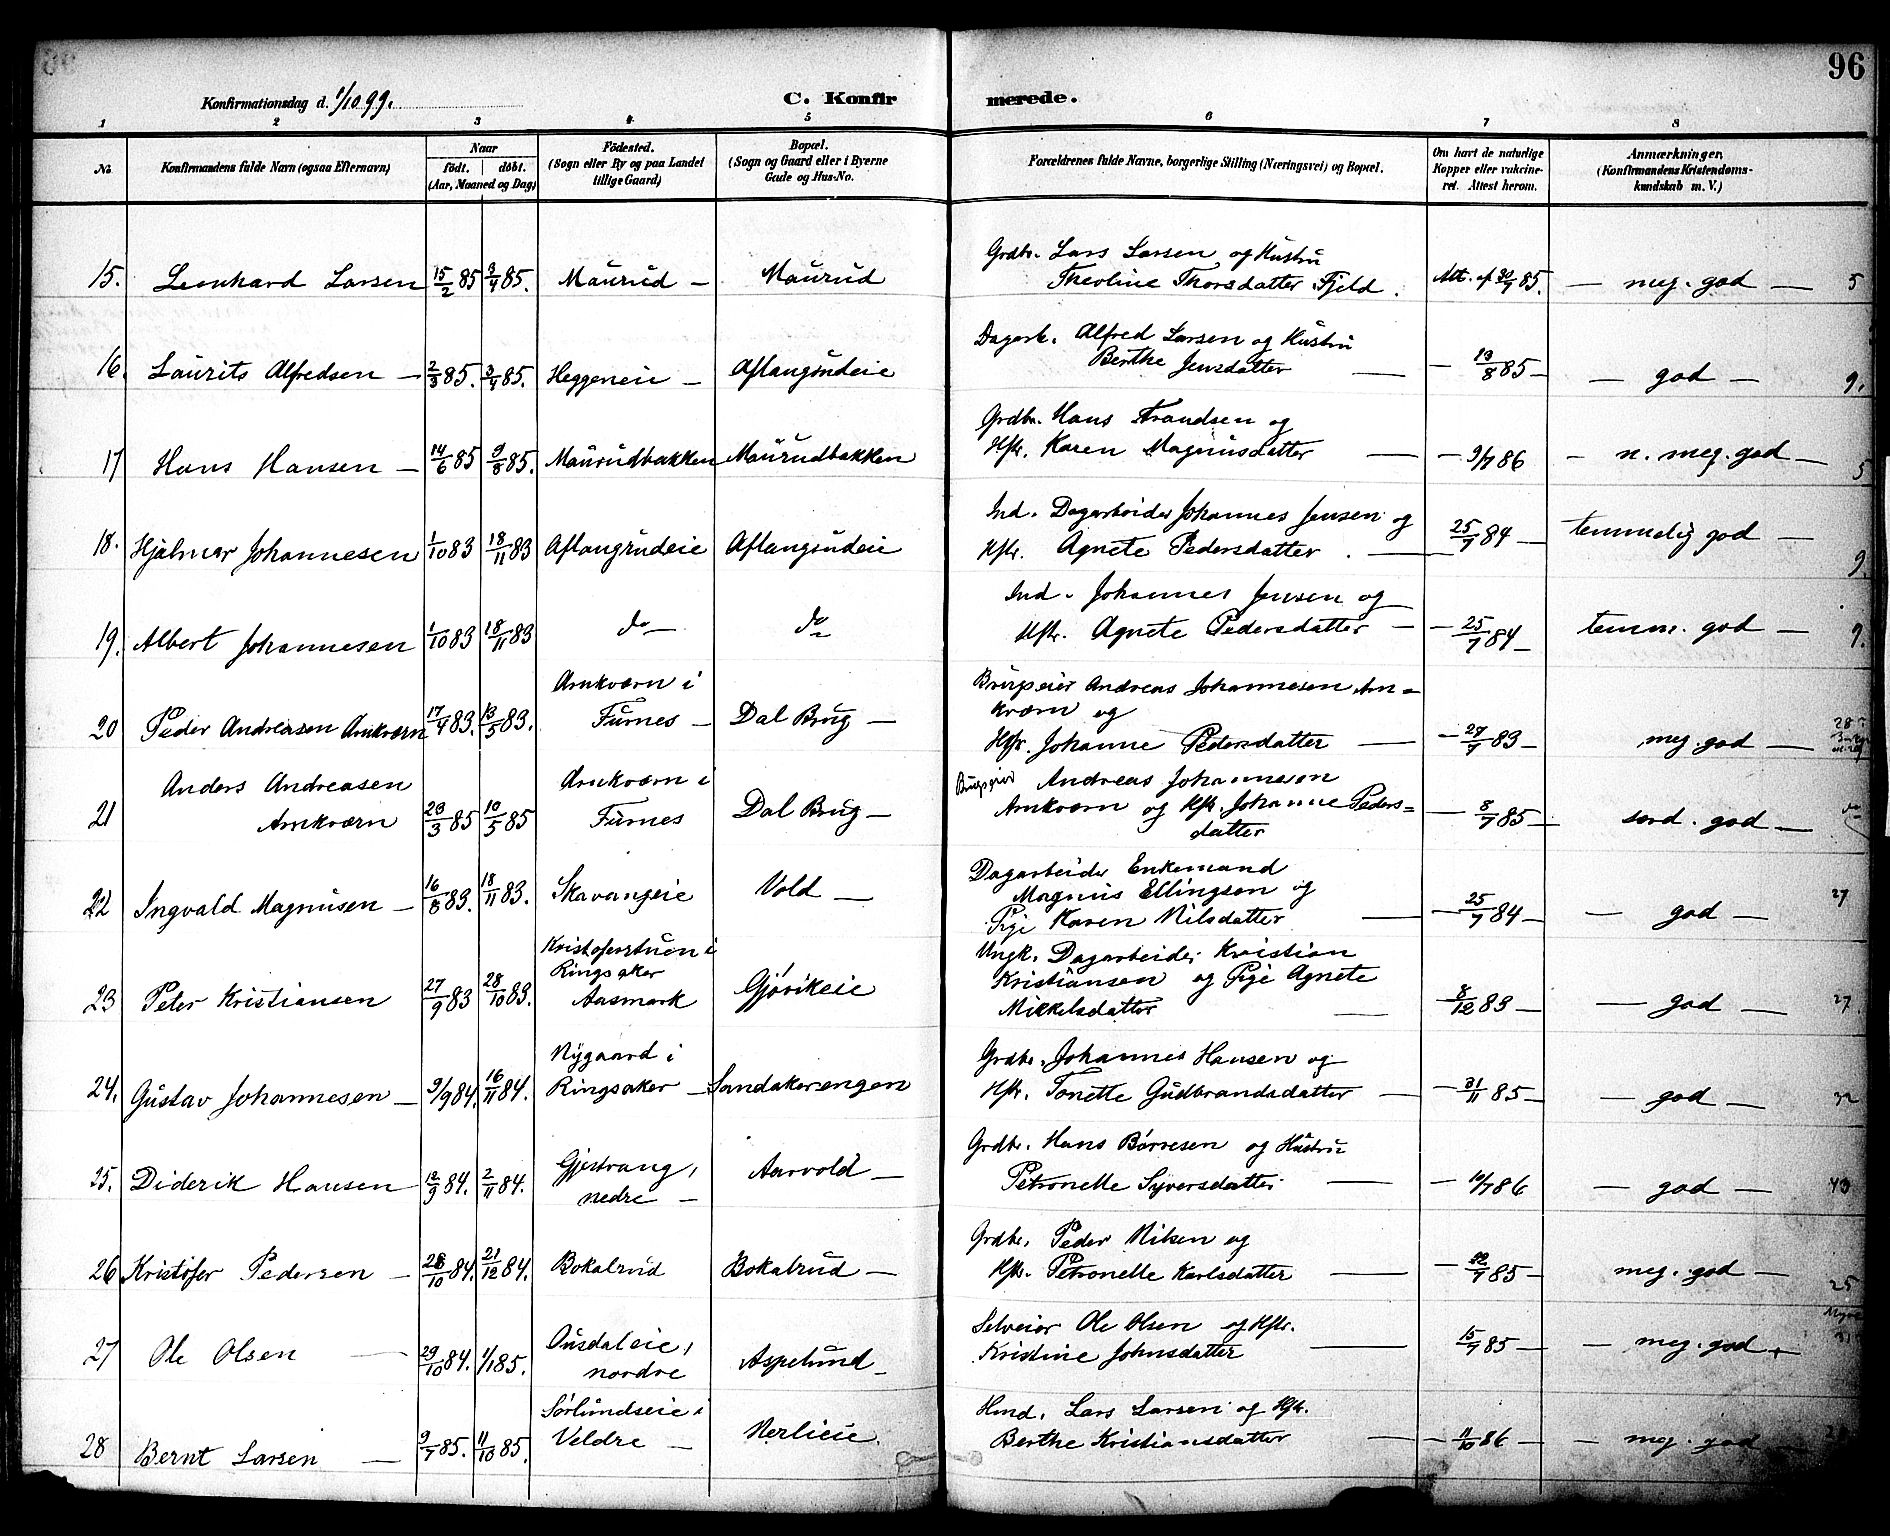 96
Konfirmationsdag d. 1/10 99.
C. Konfirmerede.
1 2 3 4 5 6 7 8
No. Konfirmandens fulde Navn (ogsaa Efternavn) Naar født. døbt. (Aar, Maaned og Dag) Födested. (Sogn eller By og paa Landet tillige Gaard) Bopæl. (Sogn og Gaard eller i Byerne Gade og Hus-No. Forældrenes fulde Navne, borgerlige Stilling (Næringsvei) og Bopæl. Om havt de naturlige Kopper eller vakcineret. Attest herom. Anmærkninger. (Konfirmandens Kristendomskundskab m. V.)
Grdbr. Lars Larsen og Hustru
15. Leonhard Larsen 15/2 85 3/4 85. Maurud — Maurud Theoline Thorsdatter Fjeld. Att. af 30/7 85. — meg. god — 5
Dagarb. Alfred Larsen og Hustru
16. Laurits Alfredsen — 2/3 85. 3/4 85. Heggeneie — Aflangrudeie Berthe Jensdatter — — 13/8 85 — — god — 9.
Grdbr. Hans Frandsen og
17 Hans Hansen — 14/6 85 9/8 85. Maurudbakken Maurudbakken Hstr. Karen Magnusdatter — — 9/7 86 — n. meg. god — 5
Ind. Dagarbeider Johannes Jensen og
18. Hjalmar Johannesen 1/10 83 18/11 83 Aflangrudeie Aflangrudeie Hstr. Agnete Pedersdatter. — 25/7 84 — temmelig god — 9.
Ind. Johannes Jensen og
19. Albert Johannesen 1/10 83 18/11 83 do — do Hstr. Agnete Pedersdatter — — 25/7 84 — temm. god — 9.
Arnkværn i Brugseier Andreas Johannesen Arn=
kværn og
20 Peder Andreasen Arnkværn 17/4 83. 13/5 83. Furnes — Dal Brug — Hstr. Johanne Pedersdatter — — 27/7 83 — meg. god —
Anders Andreasen Arnkværn i Brugseier Andreas Johannesen
21 Arnkværn 23/3 85 10/5 85 Furnes Dal Brug — Arnkværn og Hstr. Johanne Peders=
datter — 8/7 85 — særd. god — do
Dagarbeider Enkemand
22 Ingvald Magnusen — 16/8 83. 18/11 83. Skavangeie Vold — Magnus Ellingsen og
Pige Karen Nilsdatter — — 25/7 84 — — god — 27
Kristoferstuen i Ungk. Dagarbeider Kristian
Ringsaker Kristiansen og Pige Agnete
23 Peter Kristiansen 27/9 83 28/10 83. Aasmark Gjøvikeie Mikkelsdatter — — 8/12 83 — — god — 27
Nygaard i Grdbr. Johannes Hansen og
24. Gustav Johannesen — 9/9 84. 16/11 84. Ringsaker — Sandakerengen Hstr. Tonette Gudbrandsdatter — — 31/11 85 — — god — 32
Gjestvang, Grdbr. Hans Børresen og Hustru
25. Diderik Hansen 12/9 84. 2/11 84. nedre — Aarvold — Petronelle Syversdatter — — 10/7 86 — god — 43
Grdbr. Peder Nilsen og
26 Kristofer Pedersen — 28/10 84. 21/12 84. Bokalrud Bokalrud — Hstr. Petronelle Karlsdatter — — 12/7 85 — meg. god — 25
Ousdaleie, Selveier Ole Olsen og Hstr.
27 Ole Olsen — 29/10 84. 1/1 85. nordre Aspelund — Kristine Johnsdatter — 15/7 85 — — meg. god
Sørlundseie i Hmd. Lars Larsen og Hstr.
28 Bernt Larsen — 9/7 85. 11/10 85. Veldre — Nerlieie. Berthe Kristiansdatter — — 11/10 86 — — meg. god